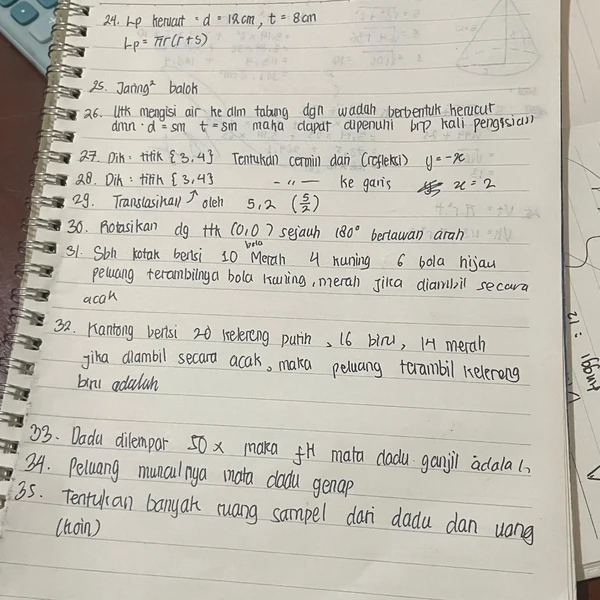 24. Lp kerucut = d = 12cm, t = 8cm
Lp = πr(r+s)
25. Jaring² balok
26. Utk mengisi air ke dlm tabung dgn wadah berbentuk kerucut
dmn · d = sm t = sm maka dapat dipenuhi brp kali pengisian
27. Dik : titik {3,4} Tentukan cermin dari (refleksi) y = -x
28. Dik : titik {3,4} - " - ke garis x = 2
29. Translasikan ↗ oleh 5,2 (5/2)
30. Rotasikan dg ttk (0,0) sejauh 180° berlawan arah
31. Sbh kotak berisi 10 bola Merah 4 kuning 6 bola hijau
peluang terambilnya bola kuning, merah jika diambil secara
acak
32. Kantong berisi 20 kelereng putih, 16 biru, 14 merah
jika diambil secara acak, maka peluang terambil kelereng
biru adalah
33. Dadu dilempar 50 x maka fH mata dadu ganjil adalah
34. Peluang munculnya mata dadu genap
35. Tentukan banyak ruang sampel dari dadu dan uang
(koin)